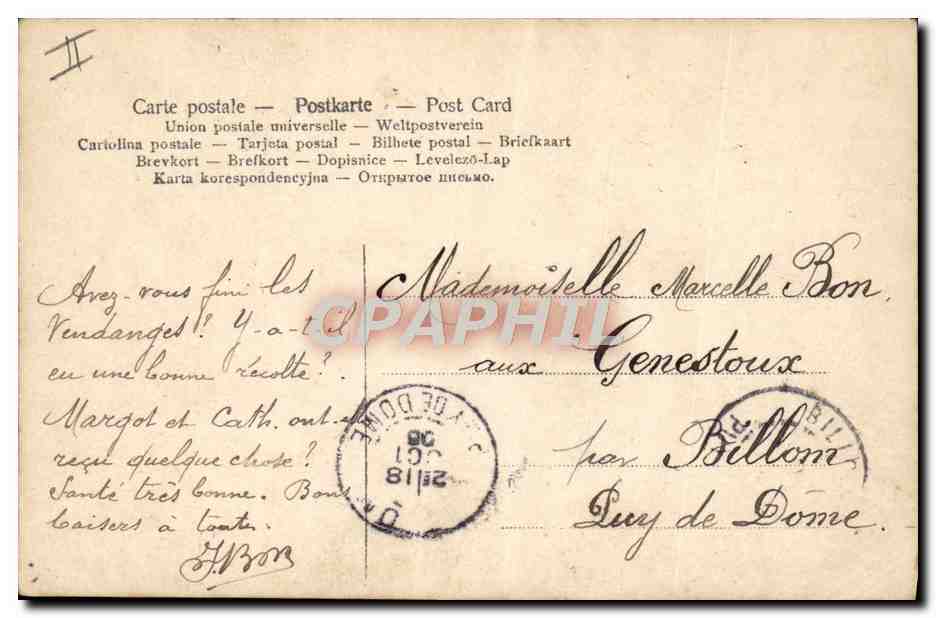 II
Carte postale — Postkarte — Post Card
Union postale universelle — Weltpostverein
Cartolina postale — Tarjeta postal — Bilhete postal — Briefkaart
Brevkort — Brefkort — Dopisnice — Levelező-Lap
Karta korespondencyjna — Открытое письмо.
Avez-vous fini les
Vendanges? Y-a-t-il
eu une bonne récolte?
Margot et Cath. ont-elles
reçu quelque chose?
Santé très bonne. Bons
baisers à toutes.
Mademoiselle Marcelle Bon,
aux Genestoux
par Billom
Puy de Dôme.
CPAPHIL
Y DE DOME
2E 18
OCT
BILL